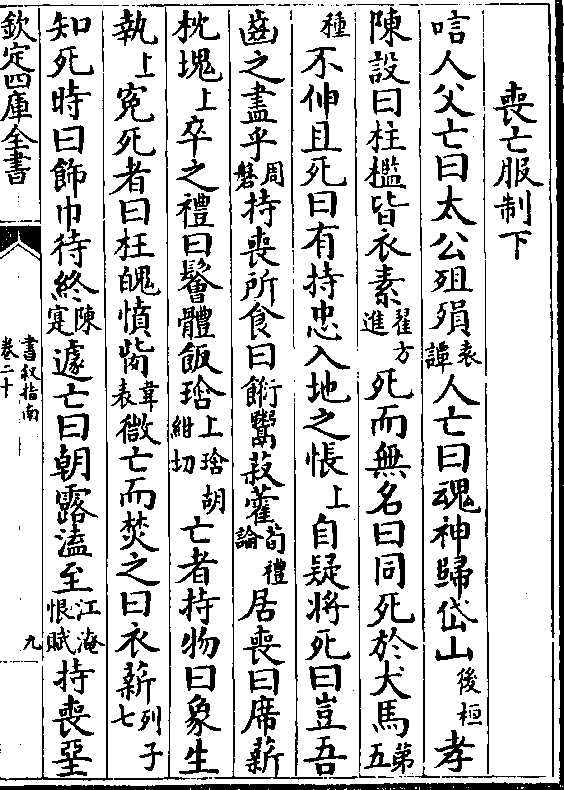 喪亡服制下
唁人父亡曰太公殂殞袁譚人亡曰魂神歸岱山後桓孝
陳設曰柱檻皆衣素翟方進死而無名曰同死於犬馬第五
種不伸且死曰有持忠入地之悵上自疑將死曰豈吾
齒之盡乎周磐持喪所食曰餰鬻菽藿荀禮論居喪曰席薪
枕塊上卒之禮曰鬠體飯琀上琀胡紺切亡者持物曰象生
執上寃死者曰枉魄憤胔韋表微亡而焚之曰衣薪列子七
知死時曰飾巾待終陳寔遽亡曰朝露溘至江淹恨賦持喪堊
欽定四庫全書
書叙指南
卷二十
九